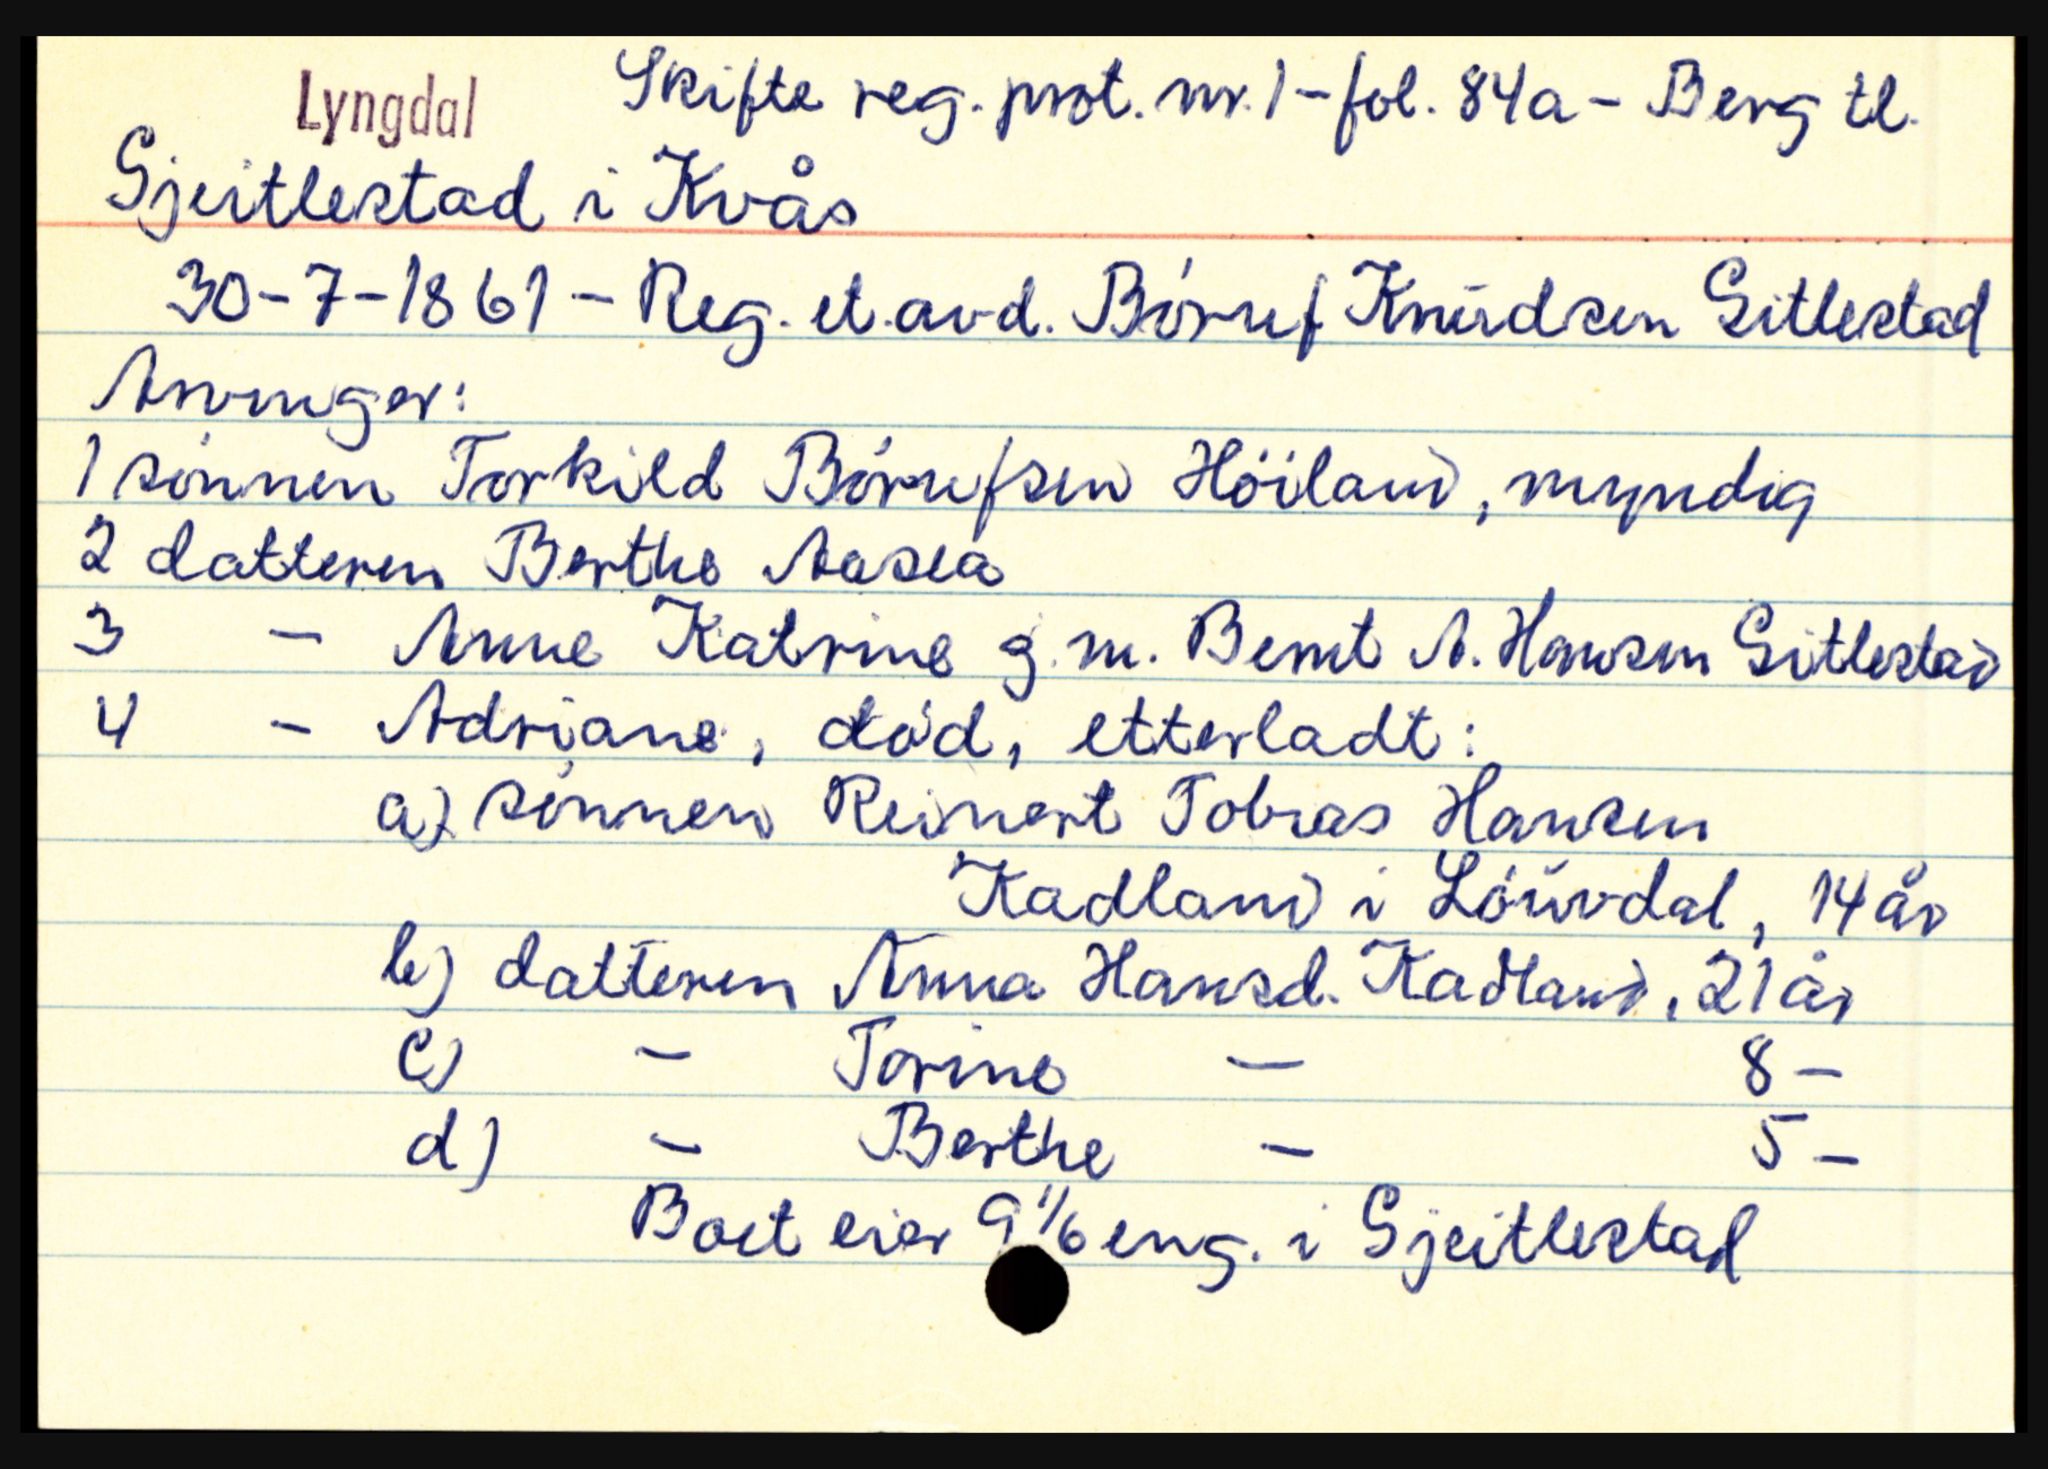 Lyngdal Skifte reg. prot. nr. 1 - fol. 84a - Berg tl.
Gjeitlestad i Kvås
30-7-1861 - Reg. et. avd. Böruf Knŭdsen Gitlestad
Arvinger:
1 sönnen Torkild Börufsen Höiland, myndig
2 datteren Berthe Aasea
3 - Anne Katrine g.m. Bernt A. Hansen Gitlestad
4 - Adriane, död, etterladt:
a) sönnen Reinert Tobias Hansen
Kadland i Löŭvdal, 14 år
b) datteren Anna Hansd. Kadland, 21 år
c) - Torine - 8 -
d) - Berthe - 5 -
Boet eier 9 1/6 eng. i Gjeitlestad